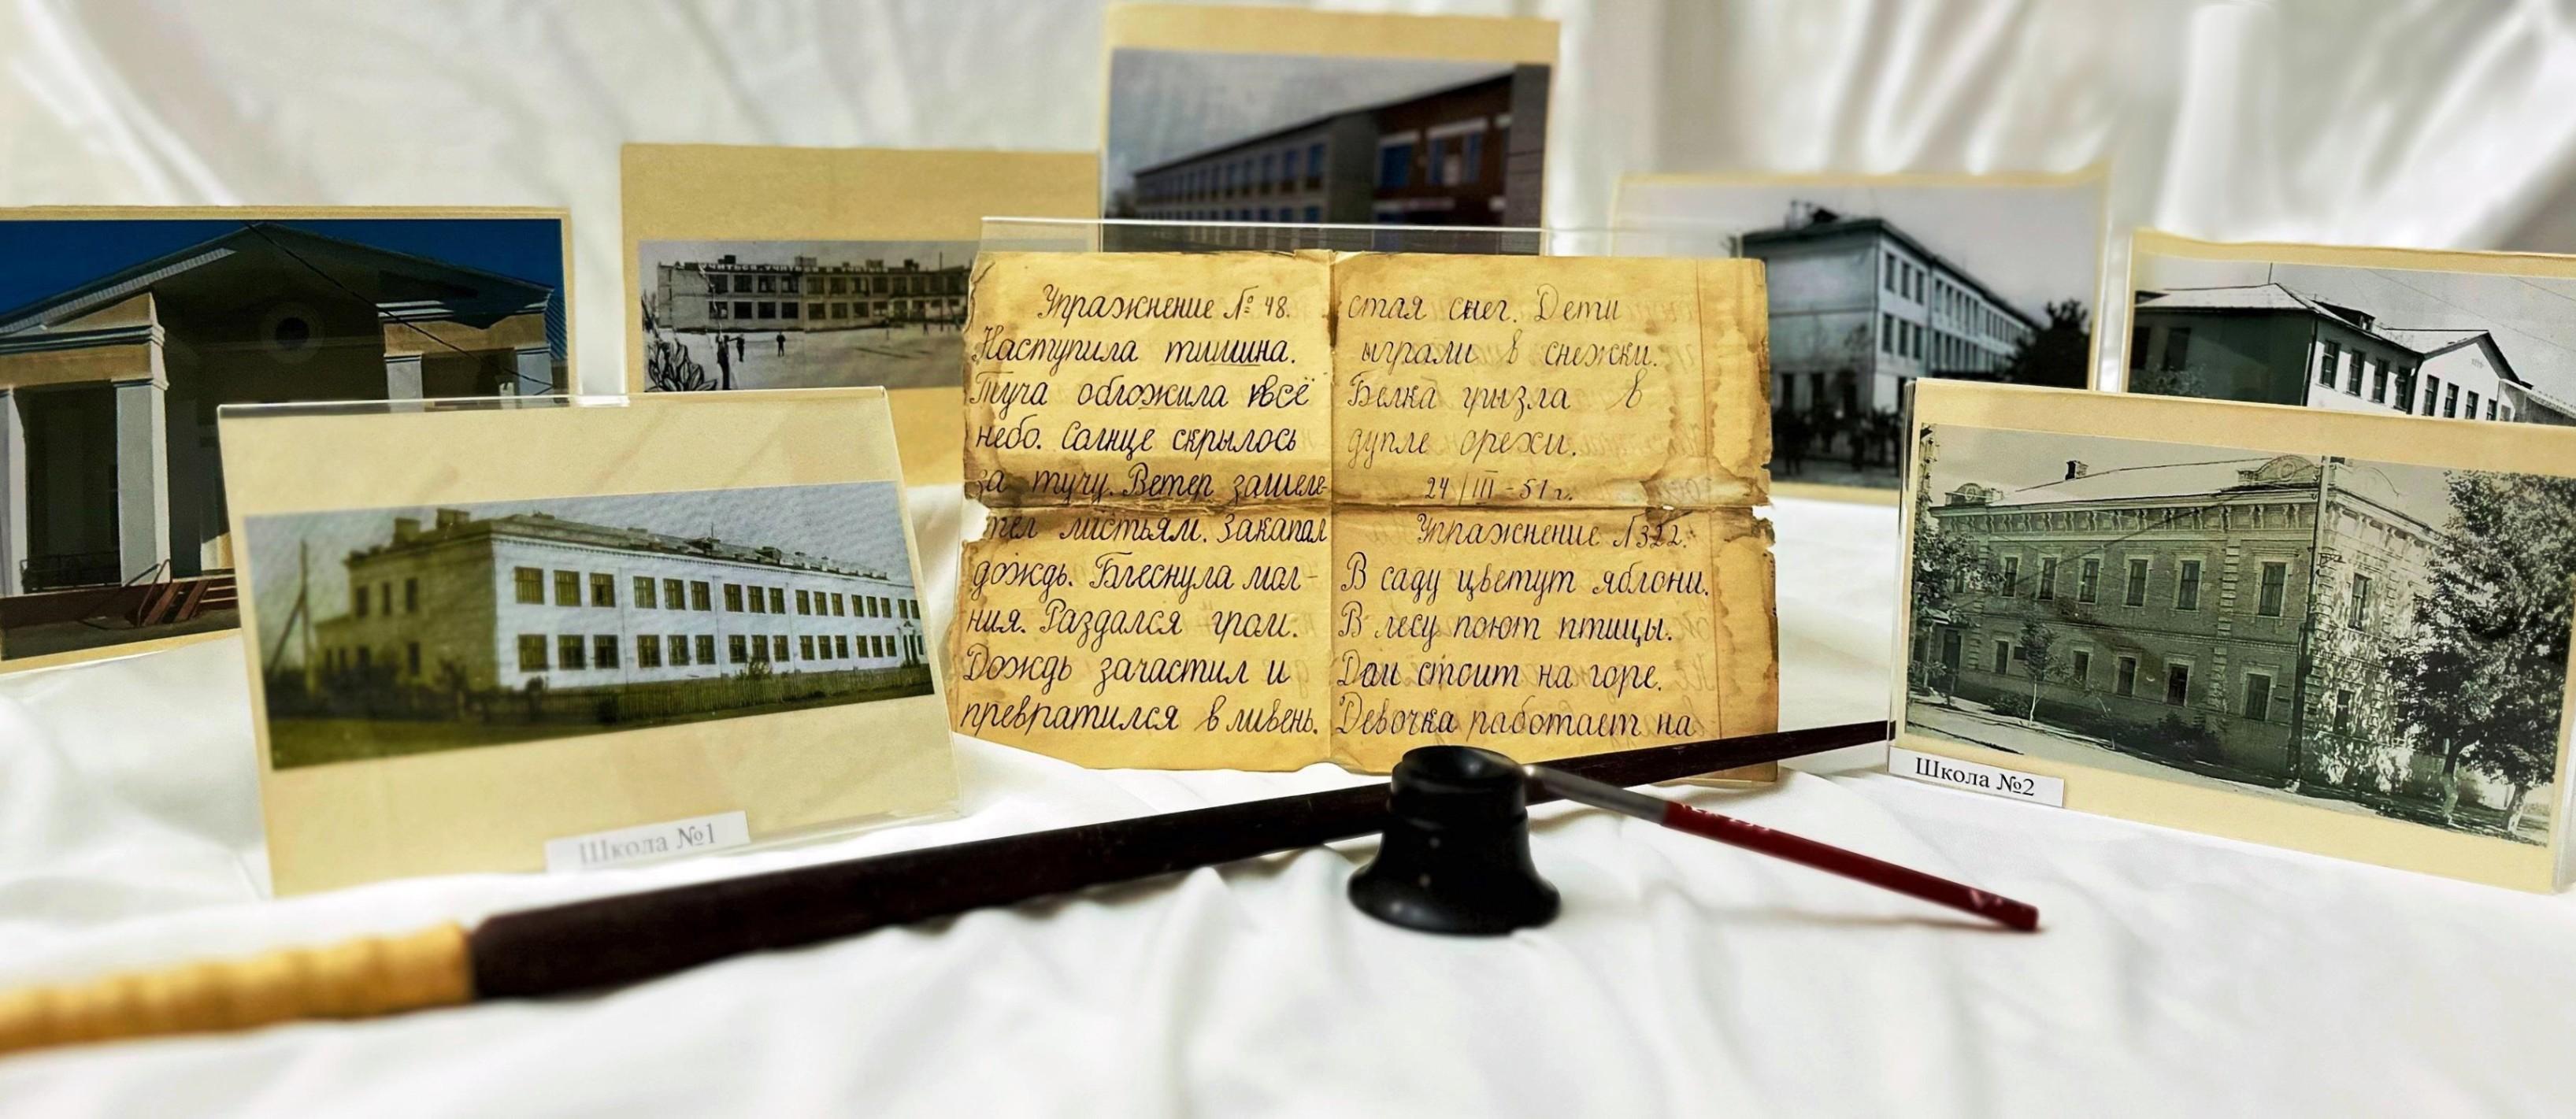 Упражнение № 48.
Наступила тишина.
Туча обложила всё
небо. Солнце скрылось
за тучу. Ветер зашеле-
тел листьям. Закапал
дождь. Блеснула мол-
ния. Раздался гром.
Дождь зачастил и
превратился в ливень.
стая снег. Дети
играли в снежки.
Белка грызла в
дупле орехи.
24/III-51 г.
Упражнение №322.
В саду цветут яблони.
В лесу поют птицы.
Дом стоит на горе.
Девочка работает на
Школа №1
Школа №2